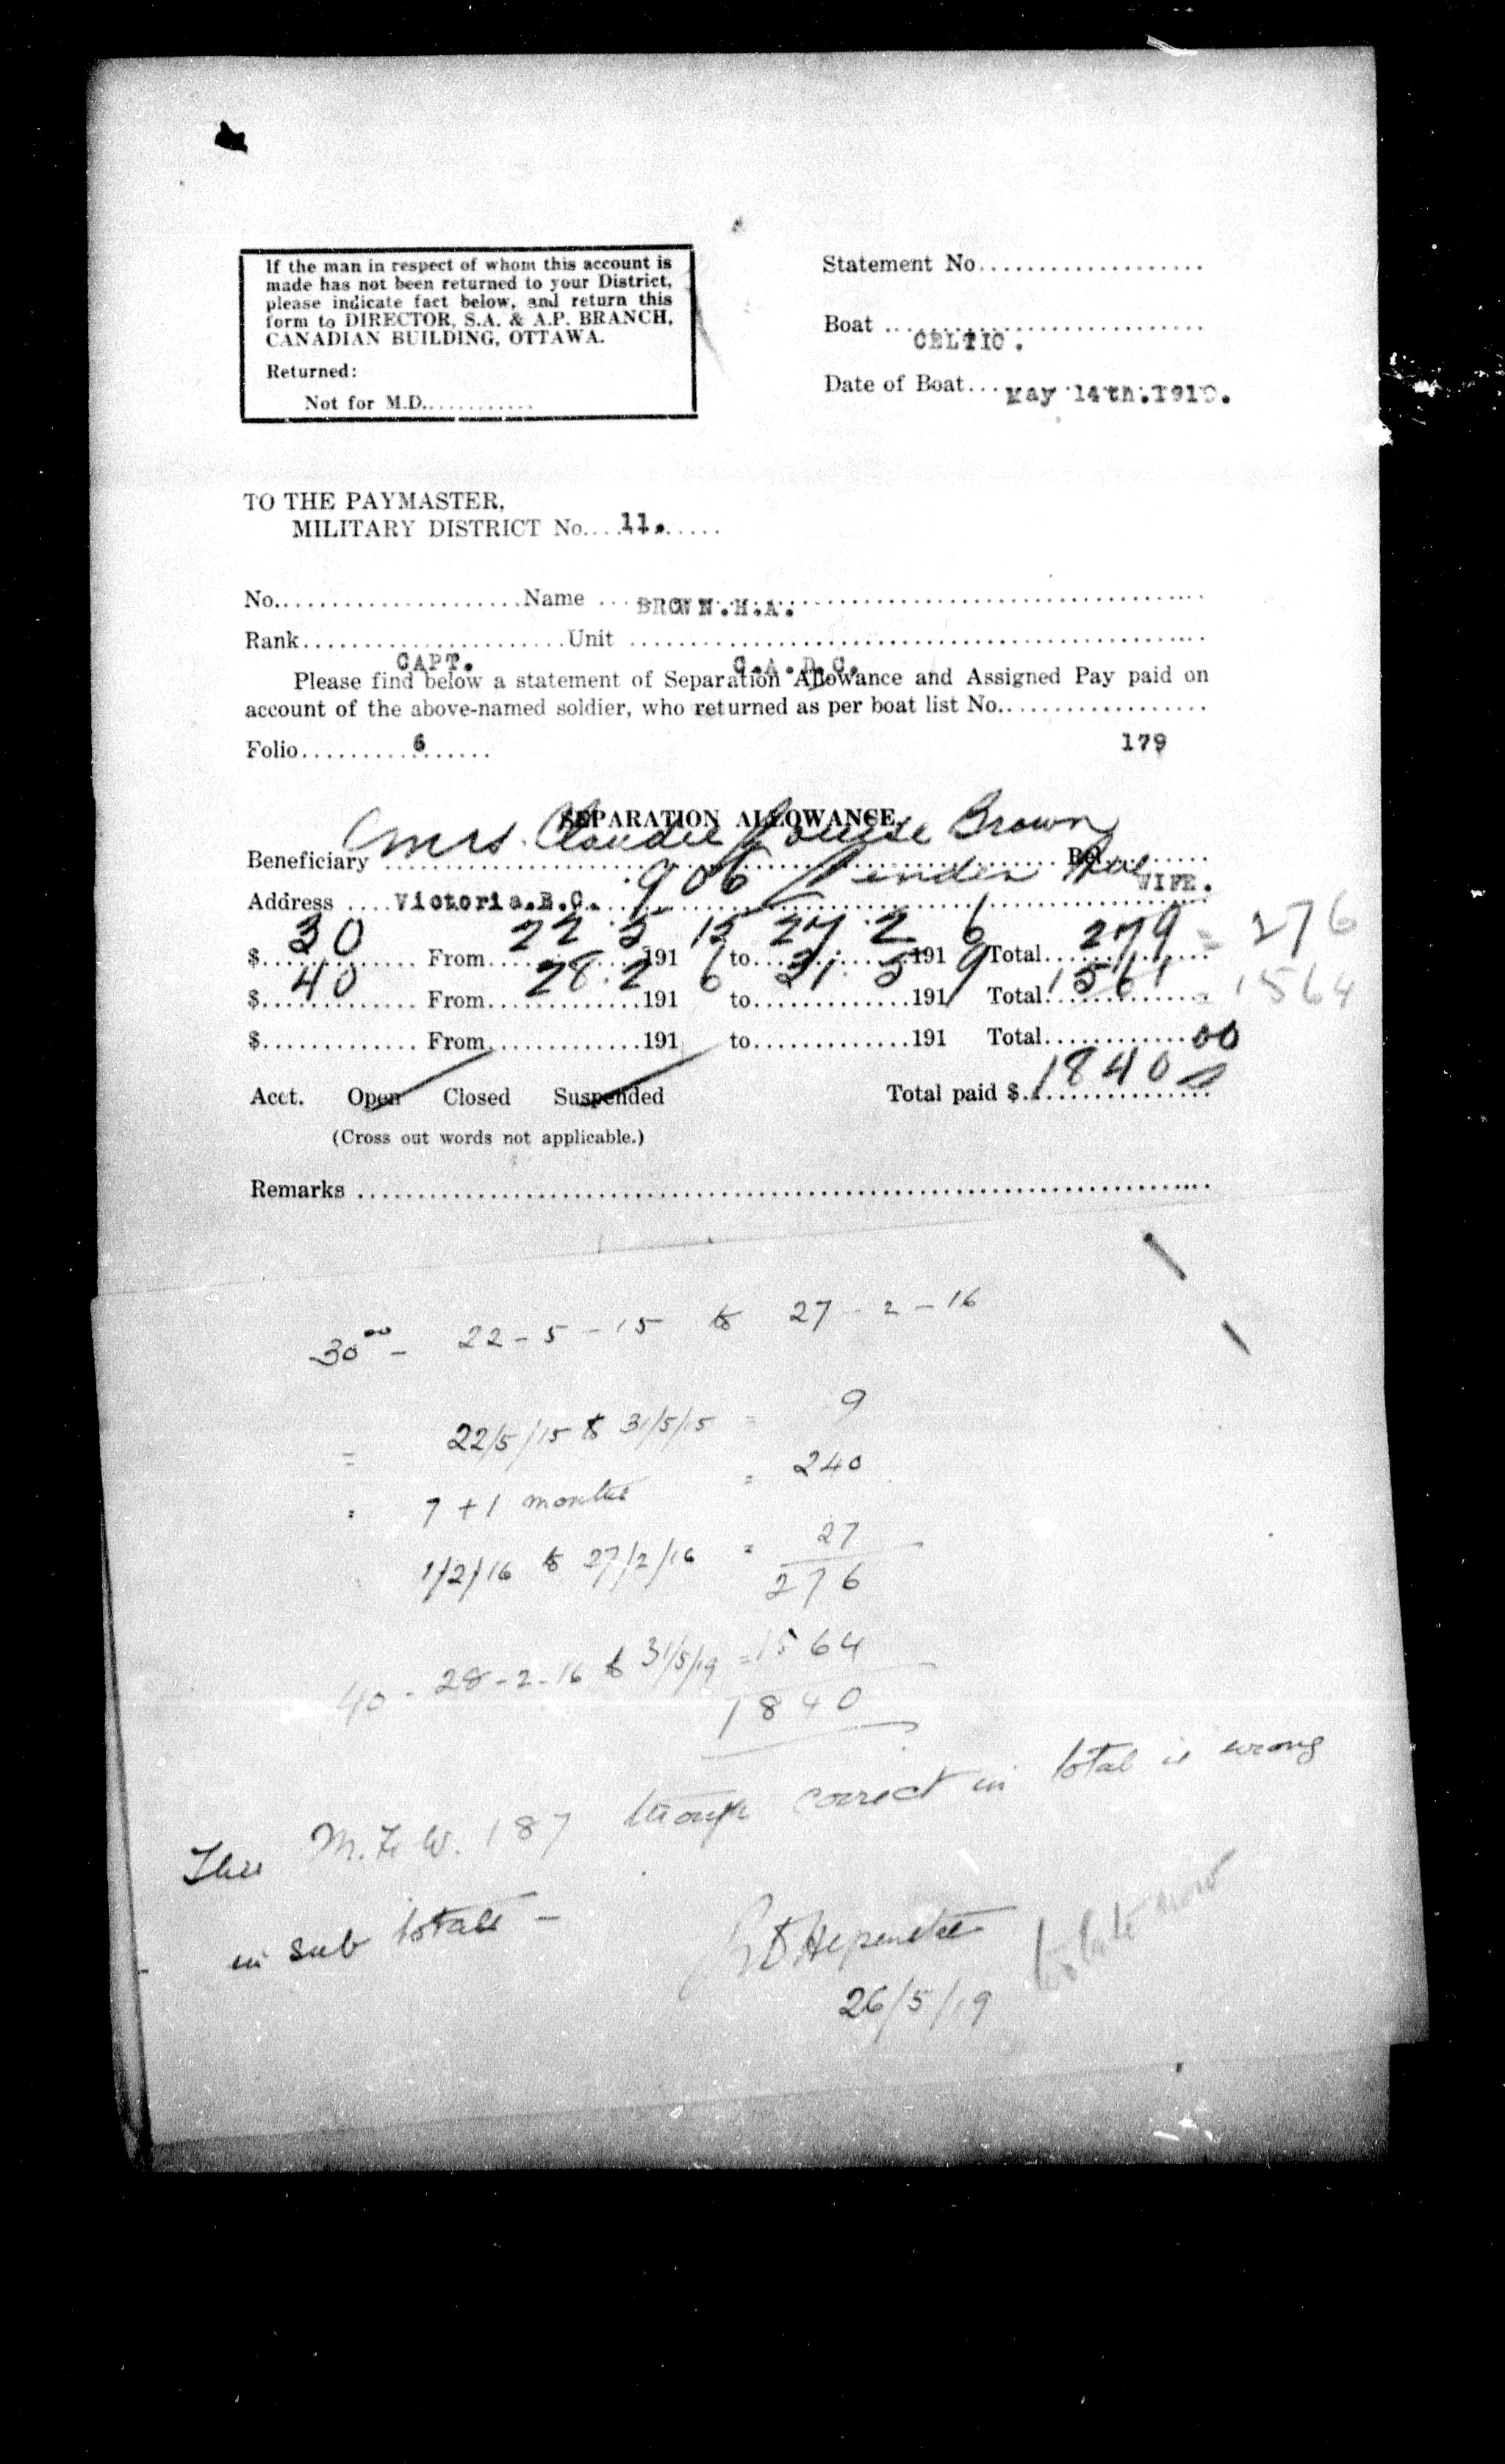 If the man in respect of whom this account is
made has not been returned to your District,
please indicate fact below, and return this
form to DIRECTOR, S.A. & A.P. BRANCH,
CANADIAN BUILDING, OTTAWA.
Returned:
Not for M.D.............
Statement No....................
Boat ........CELTIC.
Date of Boat... May 14th.1919.
TO THE PAYMASTER,
MILITARY DISTRICT No....11.......
No......................Name ...BROWN.H.A.
Rank......CAPT.......Unit ......C.A.D.C.
Please find below a statement of Separation Allowance and Assigned Pay paid on
account of the above-named soldier, who returned as per boat list No...................
Folio..........6......
179
SEPARATION ALLOWANCE.
Beneficiary Mrs. Claudie Louise Brown Rel. WIFE.
Address ....Victoria.B.C. 906 Linden Ave
$ 30 From 22 5 1915 to 27 2 1916 Total 279 = 276
$ 40 From 28.2 1916 to 31 5 1919 Total 1561 = 1564
$............. From.............191 to.............191 Total.............
Acct. Open Closed Suspended Total paid $ 1840 00
(Cross out words not applicable.)
Remarks ..................................................
30 00 - 22-5-15 to 27-2-16
= 22/5/15 to 31/5/15 = 9
= 7 + 1 months = 240
1/2/16 to 27/2/16 = 27
276
40 - 28-2-16 to 31/5/19 = 1564
1840
This M.F.W. 187 though correct in total is wrong
in sub totals -
26/5/19